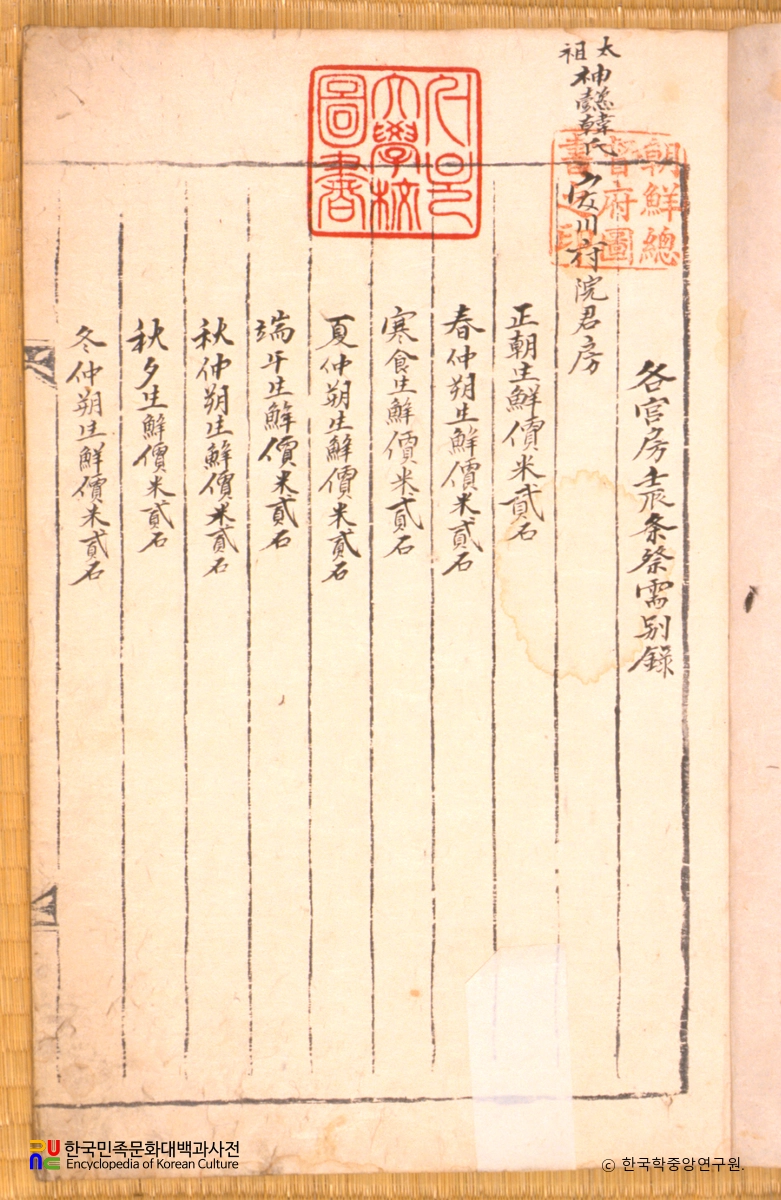 太祖 神懿韓氏
各宮房条祭需別錄
安川府院君房
正朝生鮮價米貳石
春仲朔生鮮價米貳石
寒食生鮮價米貳石
夏仲朔生鮮價米貳石
端午生鮮價米貳石
秋仲朔生鮮價米貳石
秋夕生鮮價米貳石
冬仲朔生鮮價米貳石
朝鮮總
督府圖
書之印
서울
大學校
圖書
한국민족문화대백과사전
Encyclopedia of Korean Culture
© 한국학중앙연구원.